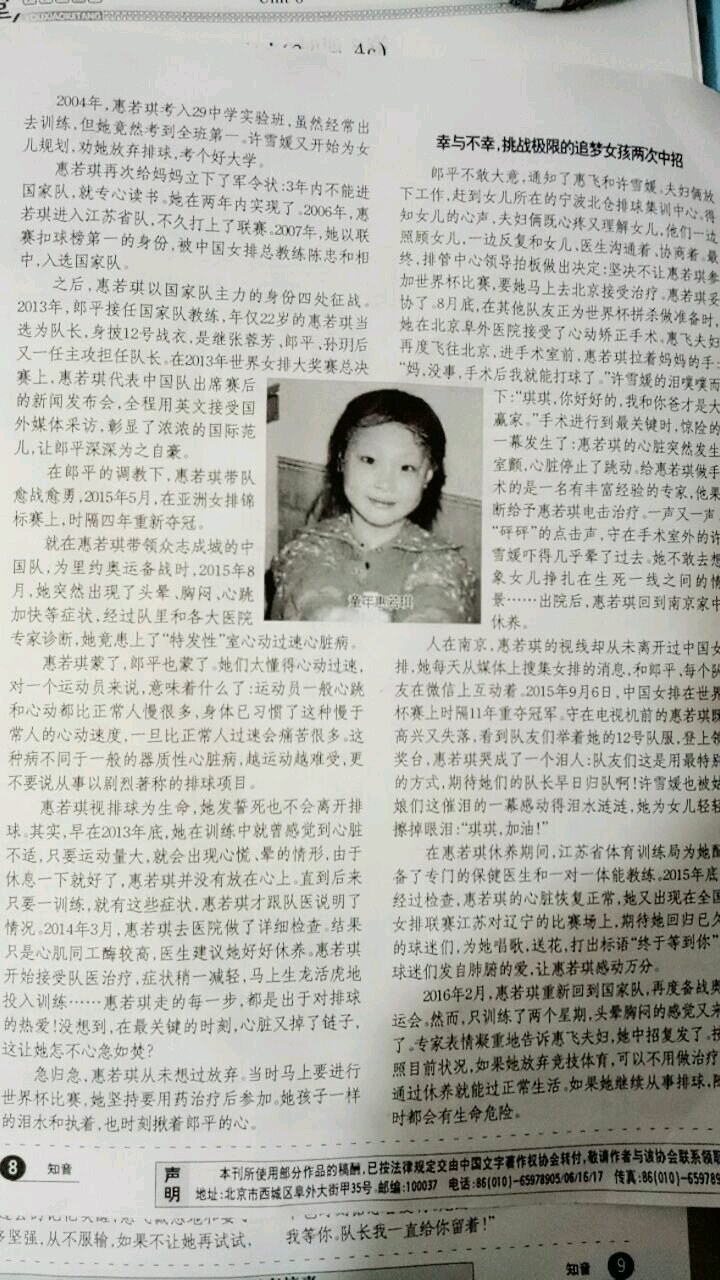 2004年，惠若琪考入29中学实验班，虽然经常出
去训练，但她竟然考到全班第一。许雪媛又开始为女
儿规划，劝她放弃排球，考个好大学。
惠若琪再次给妈妈立下了军令状：3年内不能进
国家队，就专心读书。她在两年内实现了。2006年，惠
若琪进入江苏省队，不久打上了联赛。2007年，她以联
赛扣球榜第一的身份，被中国女排总教练陈忠和相
中，入选国家队。
之后，惠若琪以国家队主力的身份四处征战。
2013年，郎平接任国家队教练，年仅22岁的惠若琪当
选为队长，身披12号战衣，是继张蓉芳、郎平、孙玥后
又一任主攻担任队长。在2013年世界女排大奖赛总决
赛上，惠若琪代表中国队出席赛后
的新闻发布会，全程用英文接受国
外媒体采访，彰显了浓浓的国际范
儿，让郎平深深为之自豪。
在郎平的调教下，惠若琪带队
愈战愈勇，2015年5月，在亚洲女排锦
标赛上，时隔四年重新夺冠。
就在惠若琪带领众志成城的中
国队，为里约奥运备战时，2015年8
月，她突然出现了头晕、胸闷、心跳
加快等症状，经过队里和各大医院
专家诊断，她竟患上了“特发性”室心动过速心脏病。
惠若琪蒙了，郎平也蒙了。她们太懂得心动过速，
对一个运动员来说，意味着什么了：运动员一般心跳
和心动都比正常人慢很多，身体已习惯了这种慢于
常人的心动速度，一旦比正常人过速会痛苦很多。这
种病不同于一般的器质性心脏病，越运动越难受，更
不要说从事以剧烈著称的排球项目。
惠若琪视排球为生命，她发誓死也不会离开排
球。其实，早在2013年底，她在训练中就曾感觉到心脏
不适，只要运动量大，就会出现心慌、晕的情形，由于
休息一下就好了，惠若琪并没有放在心上。直到后来
只要一训练，就有这些症状，惠若琪才跟队医说明了
情况。2014年3月，惠若琪去医院做了详细检查。结果
只是心肌同工酶较高，医生建议她好好休养。惠若琪
开始接受队医治疗，症状稍一减轻，马上生龙活虎地
投入训练……惠若琪走的每一步，都是出于对排球
的热爱！没想到，在最关键的时刻，心脏又掉了链子，
这让她怎不心急如焚？
急归急，惠若琪从未想过放弃。当时马上要进行
世界杯比赛，她坚持要用药治疗后参加。她孩子一样
的泪水和执着，也时刻揪着郎平的心。
幸与不幸，挑战极限的追梦女孩两次中招
郎平不敢大意，通知了惠飞和许雪媛。夫妇俩放
下工作，赶到女儿所在的宁波北仑排球集训中心。得
知女儿的心声，夫妇俩既心疼又理解女儿，他们一边
照顾女儿，一边反复和女儿、医生沟通着、协商着。最
终，排管中心领导拍板做出决定：坚决不让惠若琪参
加世界杯比赛，要她马上去北京接受治疗。惠若琪妥
协了。8月底，在其他队友正为世界杯拼杀做准备时，
她在北京阜外医院接受了心动矫正手术。惠飞夫妇
再度飞往北京，进手术室前，惠若琪拉着妈妈的手：
“妈，没事，手术后我就能打球了。”许雪媛的泪噗噗而
下：“琪琪，你好好的，我和你爸才是大
赢家。”手术进行到最关键时，惊险的
一幕发生了：惠若琪的心脏突然发生
室颤，心脏停止了跳动。给惠若琪做手
术的是一名有丰富经验的专家，他果
断给予惠若琪电击治疗。一声又一声
“砰砰”的点击声，守在手术室外的许
雪媛吓得几乎晕了过去。她不敢去想
象女儿挣扎在生死一线之间的情
景……出院后，惠若琪回到南京家中
休养。
童年惠若琪
人在南京，惠若琪的视线却从未离开过中国女
排，她每天从媒体上搜集女排的消息，和郎平、每个队
友在微信上互动着。2015年9月6日，中国女排在世界
杯赛上时隔11年重夺冠军。守在电视机前的惠若琪既
高兴又失落，看到队友们举着她的12号队服，登上领
奖台，惠若琪哭成了一个泪人：队友们这是用最特别
的方式，期待她们的队长早日归队啊！许雪媛也被姑
娘们这催泪的一幕感动得泪水涟涟，她为女儿轻轻
擦掉眼泪：“琪琪，加油！”
在惠若琪休养期间，江苏省体育训练局为她配
备了专门的保健医生和一对一体能教练。2015年底，
经过检查，惠若琪的心脏恢复正常，她又出现在全国
女排联赛江苏对辽宁的比赛场上，期待她回归已久
的球迷们，为她唱歌，送花，打出标语“终于等到你”，
球迷们发自肺腑的爱，让惠若琪感动万分。
2016年2月，惠若琪重新回到国家队，再度备战奥
运会。然而，只训练了两个星期，头晕胸闷的感觉又来
了。专家表情凝重地告诉惠飞夫妇，她中招复发了。按
照目前状况，如果她放弃竞技体育，可以不用做治疗，
通过休养就能过正常生活。如果她继续从事排球，随
时都会有生命危险。
8 知音
声明
本刊所使用部分作品的稿酬，已按法律规定交由中国文字著作权协会转付，敬请作者与该协会联系领取
地址：北京市西城区阜外大街甲35号 邮编：100037 电话：86(010)-65978905/06/16/17 传真：86(010)-65978
多坚强，从不服输，如果不让她再试试，
我等你。队长我一直给你留着！”
知音 9